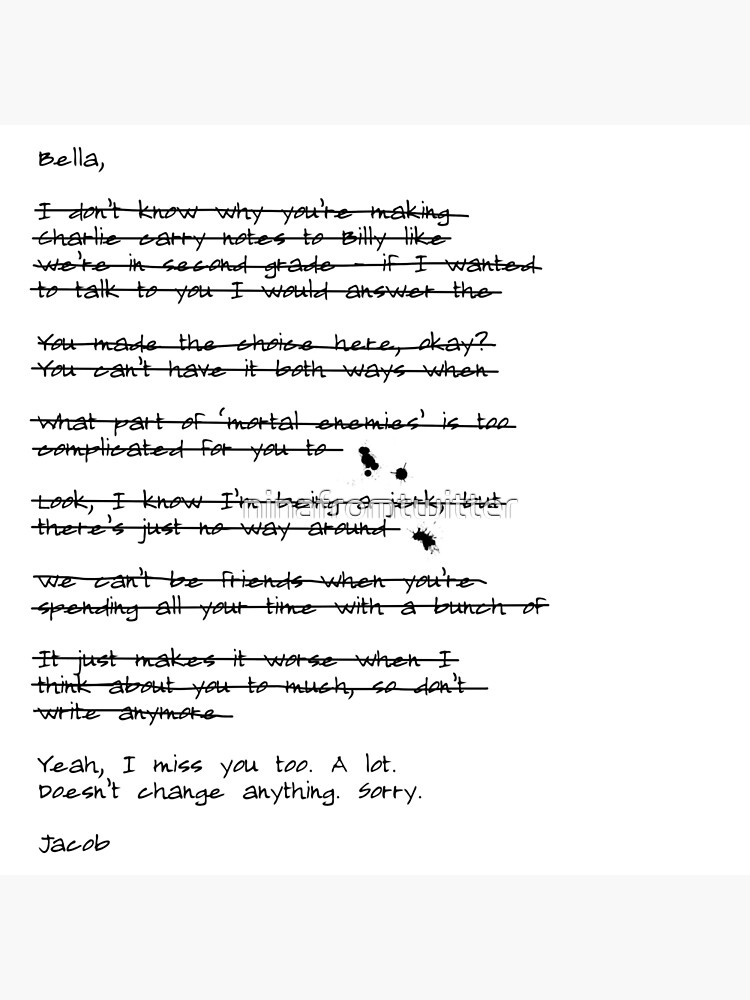 Bella,
I don't know why you're making
Charlie carry notes to Billy like
we're in second grade - if I wanted
to talk to you I would answer the
You made the choice here, okay?
You can't have it both ways when
What part of 'mortal enemies' is too
complicated for you to
Look, I know I'm being a jerk, but
there's just no way around
We can't be friends when you're
spending all your time with a bunch of
It just makes it worse when I
think about you to much, so don't
write anymore
Yeah, I miss you too. A lot.
Doesn't change anything. Sorry.
Jacob
ninafromtwitter